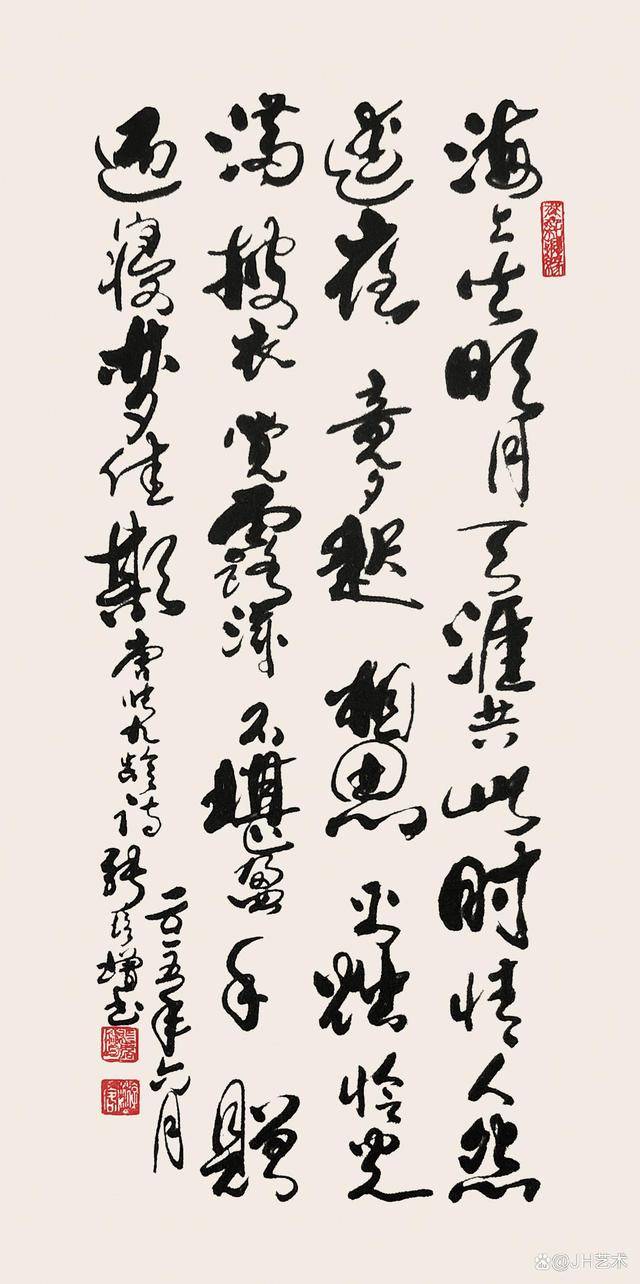 海上生明月天涯共此时情人怨
遥夜竟夕起相思灭烛怜光
满披衣觉露滋不堪盈手赠
还寝梦佳期唐张九龄诗张增书
二〇一五年六月
@JH艺术